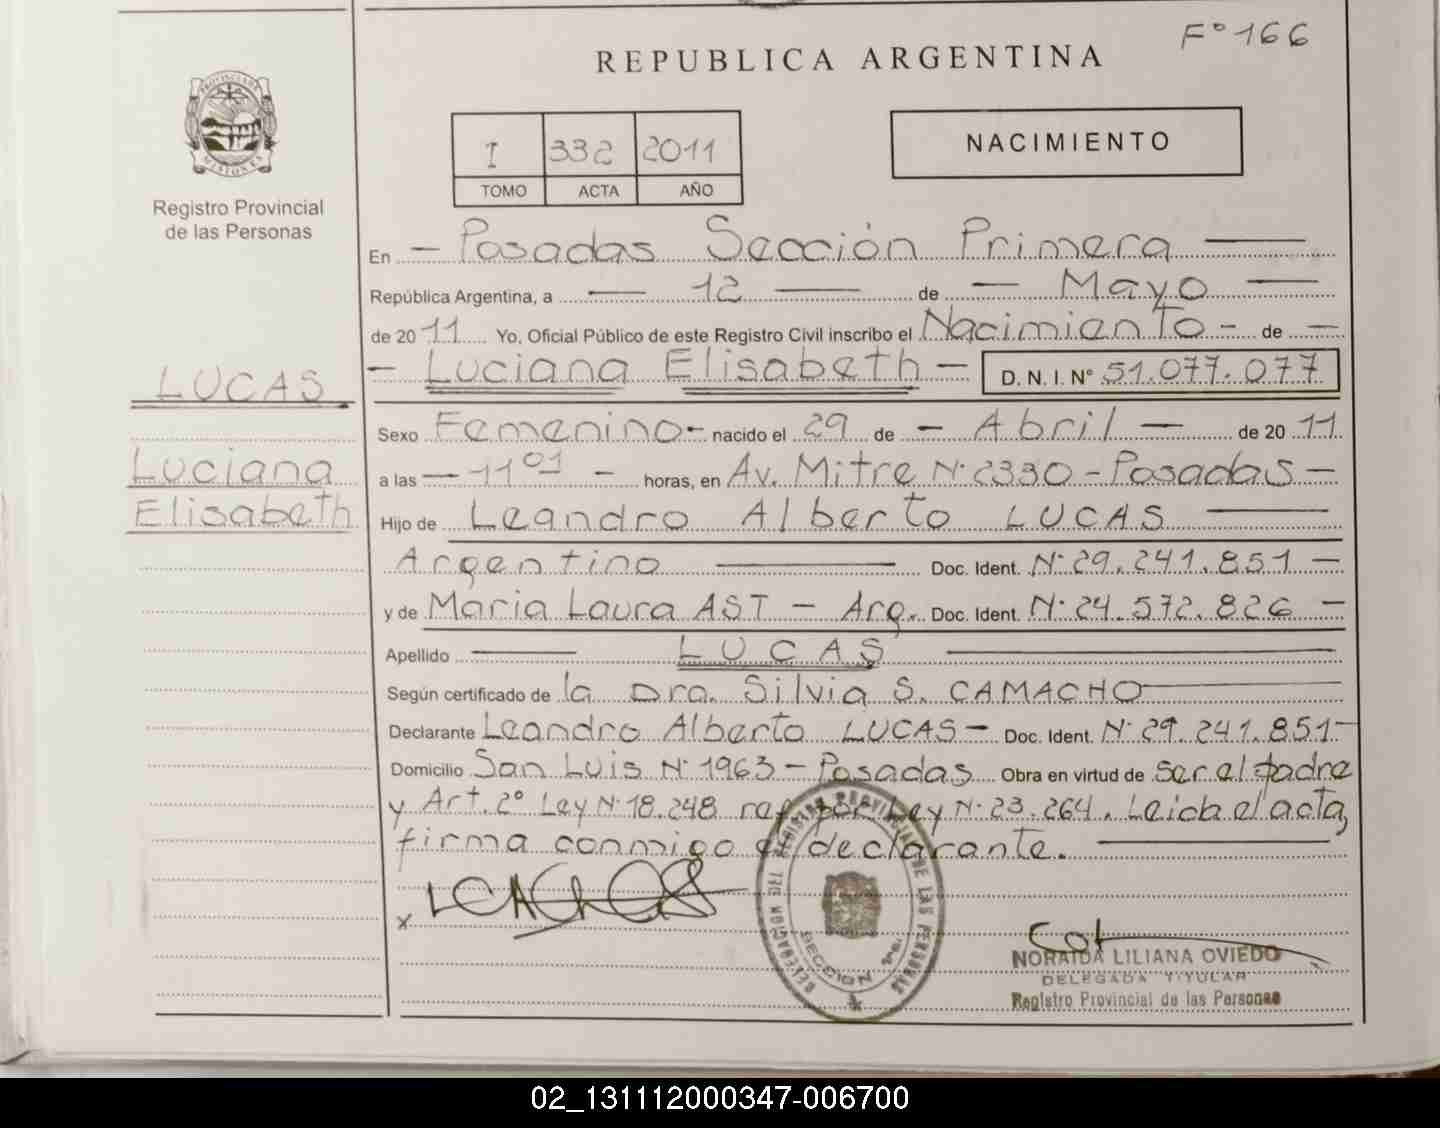 F° 166
REPUBLICA ARGENTINA
I 332 2011
TOMO ACTA AÑO
NACIMIENTO
PROVINCIA DE MISIONES
Registro Provincial
de las Personas
En - Posadas Sección Primera
República Argentina, a - 12 - de - Mayo -
de 2011 Yo, Oficial Público de este Registro Civil inscribo el Nacimiento - de -
- Luciana Elisabeth - D. N. I. N° 51.077.077
LUCAS
Luciana
Elisabeth
Sexo Femenino - nacido el 29 de - Abril - de 2011
a las - 11 01 - horas, en Av. Mitre N° 2330 - Posadas -
Hijo de Leandro Alberto LUCAS
Argentino Doc. Ident. N° 29.241.851 -
y de Maria Laura AST - Arg. Doc. Ident. N° 24.572.826 -
Apellido LUCAS
Según certificado de la Dra. Silvia S. CAMACHO
Declarante Leandro Alberto LUCAS - Doc. Ident. N° 29.241.851 -
Domicilio San Luis N° 1963 - Posadas Obra en virtud de ser el padre
y Art. 2° Ley N° 18.248 ref. por Ley N° 23.264. Leida el acta,
firma conmigo el declarante.
x
DELEGACION DEL REGISTRO PROVINCIAL DE LAS PERSONAS
SECCION 1ra.
NORAIDA LILIANA OVIEDO
DELEGADA TITULAR
Registro Provincial de las Personas
02_131112000347-006700